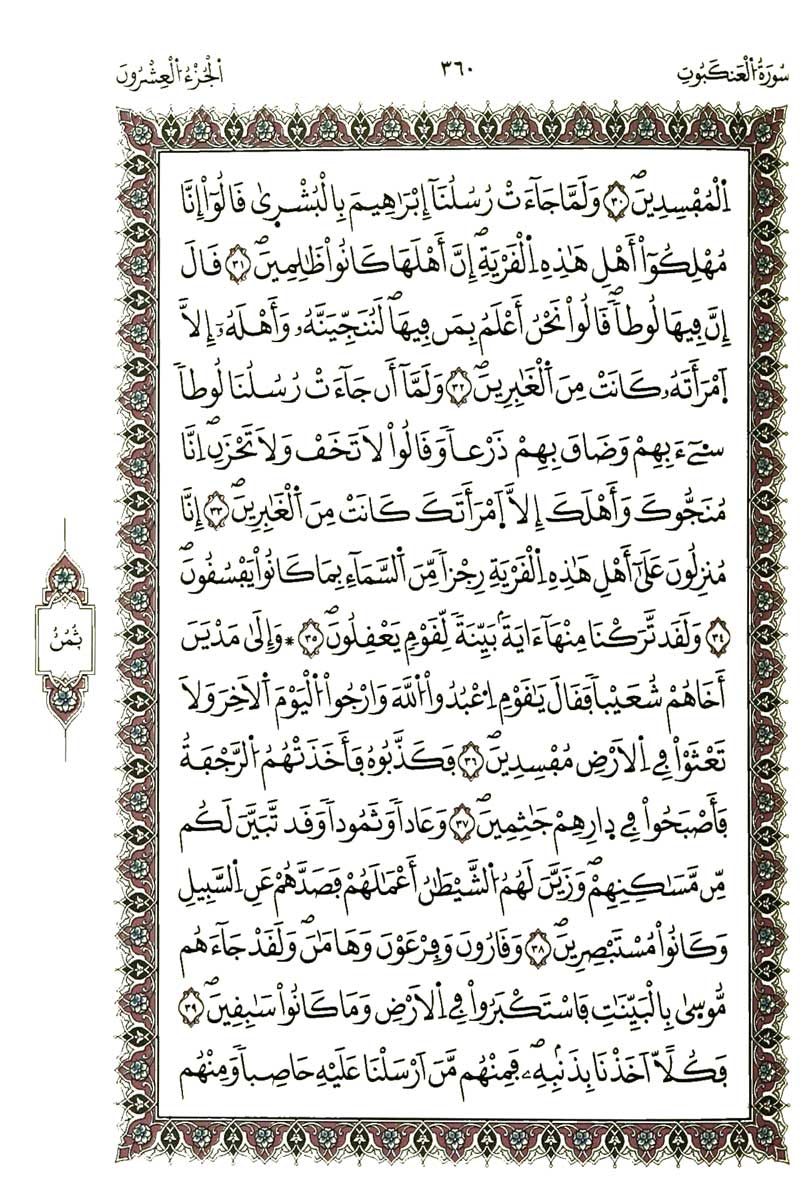 سُورَةُ الْعَنكَبُوتِ
٣٦٠
الْجُزْءُ الْعِشْرُونَ
اِ۬لْمُفْسِدِينَۖ ٣٠ وَلَمَّا جَآءَتْ رُسُلُنَآ إِبْرَٰهِيمَ بِالْبُشْر۪يٰ قَالُوٓاْ إِنَّا
مُهْلِكُوٓاْ أَهْلِ هَٰذِهِ اِ۬لْقَرْيَةِۖ إِنَّ أَهْلَهَا كَانُواْ ظَٰلِمِينَۖ ٣١ قَالَ
إِنَّ فِيهَا لُوطاٗۖ قَالُواْ نَحْنُ أَعْلَمُ بِمَن فِيهَاۖ لَنُنَجِّيَنَّهُۥ وَأَهْلَهُۥٓ إِلَّا
اَ۪مْرَأَتَهُۥ كَانَتْ مِنَ اَ۬لْغَٰبِرِينَۖ ٣٢ وَلَمَّآ أَن جَآءَتْ رُسُلُنَا لُوطاٗ
سِےٓءَ بِهِمْ وَضَاقَ بِهِمْ ذَرْعاٗ وَقَالُواْ لَا تَخَفْ وَلَا تَحْزَنِۖ اِنَّا
مُنَجُّوكَ وَأَهْلَكَ إِلَّا اَ۪مْرَأَتَكَ كَانَتْ مِنَ اَ۬لْغَٰبِرِينَۖ ٣٣ إِنَّا
مُنزِلُونَ عَلَيٰٓ أَهْلِ هَٰذِهِ اِ۬لْقَرْيَةِ رِجْزاٗ مِّنَ اَ۬لسَّمَآءِ بِمَا كَانُواْ يَفْسُقُونَۖ
٣٤ وَلَقَد تَّرَكْنَا مِنْهَآ ءَايَةَۢ بَيِّنَةٗ لِّقَوْمٖ يَعْقِلُونَۖ ٣٥ ۞ وَإِلَيٰ مَدْيَنَ
أَخَاهُمْ شُعَيْباٗ فَقَالَ يَٰقَوْمِ اِ۟عْبُدُواْ اُ۬للَّهَ وَارْجُواْ اُ۬لْيَوْمَ اَ۬لَاخِرَ وَلَا
تَعْثَوْاْ فِے اِ۬لَارْضِ مُفْسِدِينَۖ ٣٦ فَكَذَّبُوهُ فَأَخَذَتْهُمُ اُ۬لرَّجْفَةُ
فَأَصْبَحُواْ فِے د۪ارِهِمْ جَٰثِمِينَۖ ٣٧ وَعَاداٗ وَثَمُوداٗ وَقَد تَّبَيَّنَ لَكُم
مِّن مَّسَٰكِنِهِمْۖ وَزَيَّنَ لَهُمُ اُ۬لشَّيْطَٰنُ أَعْمَٰلَهُمْ فَصَدَّهُمْ عَنِ اِ۬لسَّبِيلِ
وَكَانُواْ مُسْتَبْصِرِينَۖ ٣٨ وَقَٰرُونَ وَفِرْعَوْنَ وَهَٰمَٰنَۖ وَلَقَدْ جَآءَهُم
مُّوس۪يٰ بِالْبَيِّنَٰتِ فَاسْتَكْبَرُواْ فِے اِ۬لَارْضِ وَمَا كَانُواْ سَٰبِقِينَۖ ٣٩
فَكُلّاً اَخَذْنَا بِذَنۢبِهِۦۖ فَمِنْهُم مَّنَ اَرْسَلْنَا عَلَيْهِ حَاصِباٗ وَمِنْهُم
ثُمُنُ